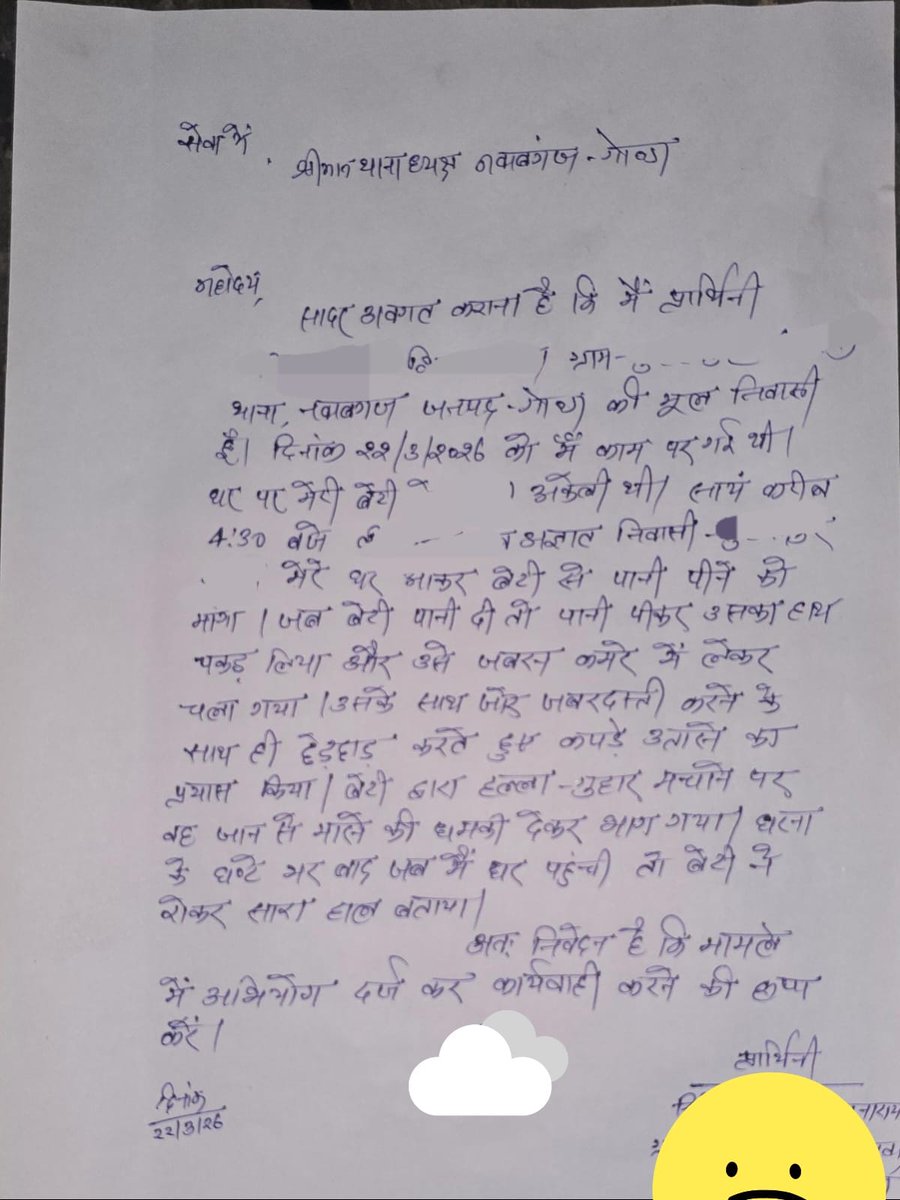 सेवा में,
श्रीमान थानाध्यक्ष नवाबगंज-गोण्डा
महोदय,
सादर अवगत कराना है कि मैं प्रार्थिनी
ग्राम-
थाना, नवाबगंज जनपद-गोण्डा की मूल निवासी
है। दिनांक 22/3/2026 को मैं काम पर गई थी।
घर पर मेरी बेटी अकेली थी। सायं करीब
4:30 बजे अज्ञात निवासी-
मेरे घर आकर बेटी से पानी पीने को
मांगा। जब बेटी पानी दी तो पानी पीकर उसका हाथ
पकड़ लिया और उसे जबरन कमरे में लेकर
चला गया। उसके साथ जोर जबरदस्ती करने के
साथ ही छेड़छाड़ करते हुए कपड़े उतारने का
प्रयास किया। बेटी द्वारा हल्ला-गुहार मचाने पर
वह जान से मारने की धमकी देकर भाग गया। घटना
के घण्टे भर बाद जब मैं घर पहुंची तो बेटी ने
रोकर सारा हाल बताया।
अतः निवेदन है कि मामले
में अभियोग दर्ज कर कार्यवाही करने की कृपा
करें।
प्रार्थिनी
दिनांक
22/3/26